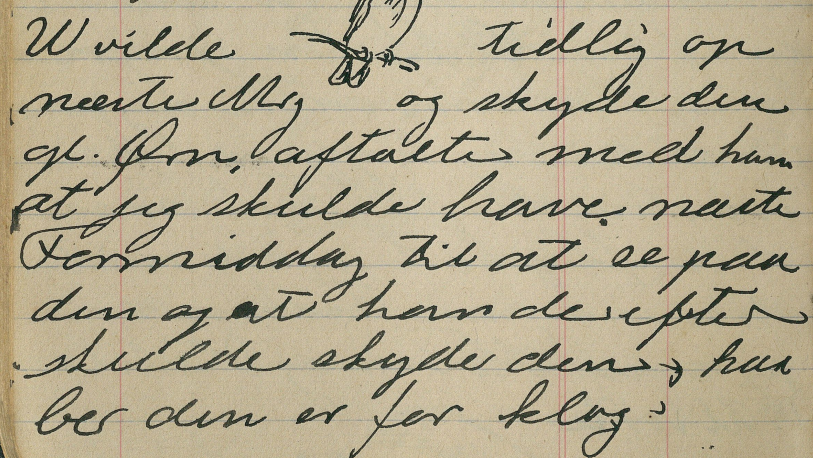 W vilde tidlig op
næste Mrg og skyde den
gl. Ørn, aftalte med ham
at jeg skulde have næste
Formiddag til at se paa
den og at han derefter
skulde skyde den, han
ber den er for klog.